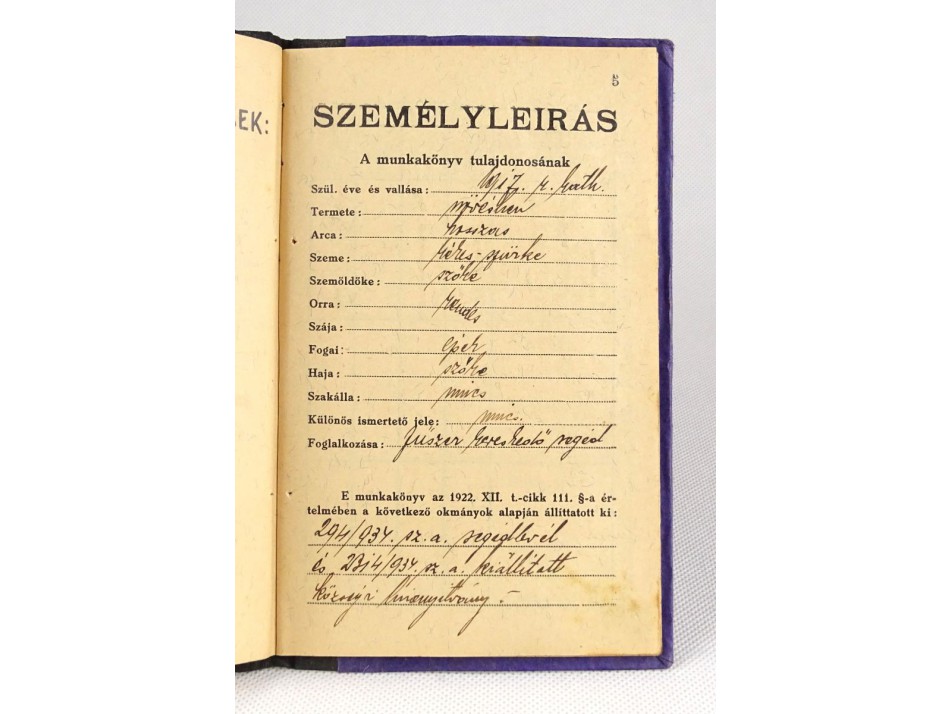 SEK:
5
SZEMÉLYLEIRÁS
A munkakönyv tulajdonosának
Szül. éve és vallása: r. kath.
Termete:
Arca: hosszas
Szeme: kékes-szürke
Szemöldöke: szőke
Orra: rendes
Szája:
Fogai: épek
Haja: szőke
Szakálla: nincs
Különös ismertető jele: nincs.
Foglalkozása: fűszer kereskedő segéd
E munkakönyv az 1922. XII. t.-cikk 111. §-a ér-
telmében a következő okmányok alapján állíttatott ki:
294/934. sz. a. segédlevél
és /934. sz. a. kiállított
községi